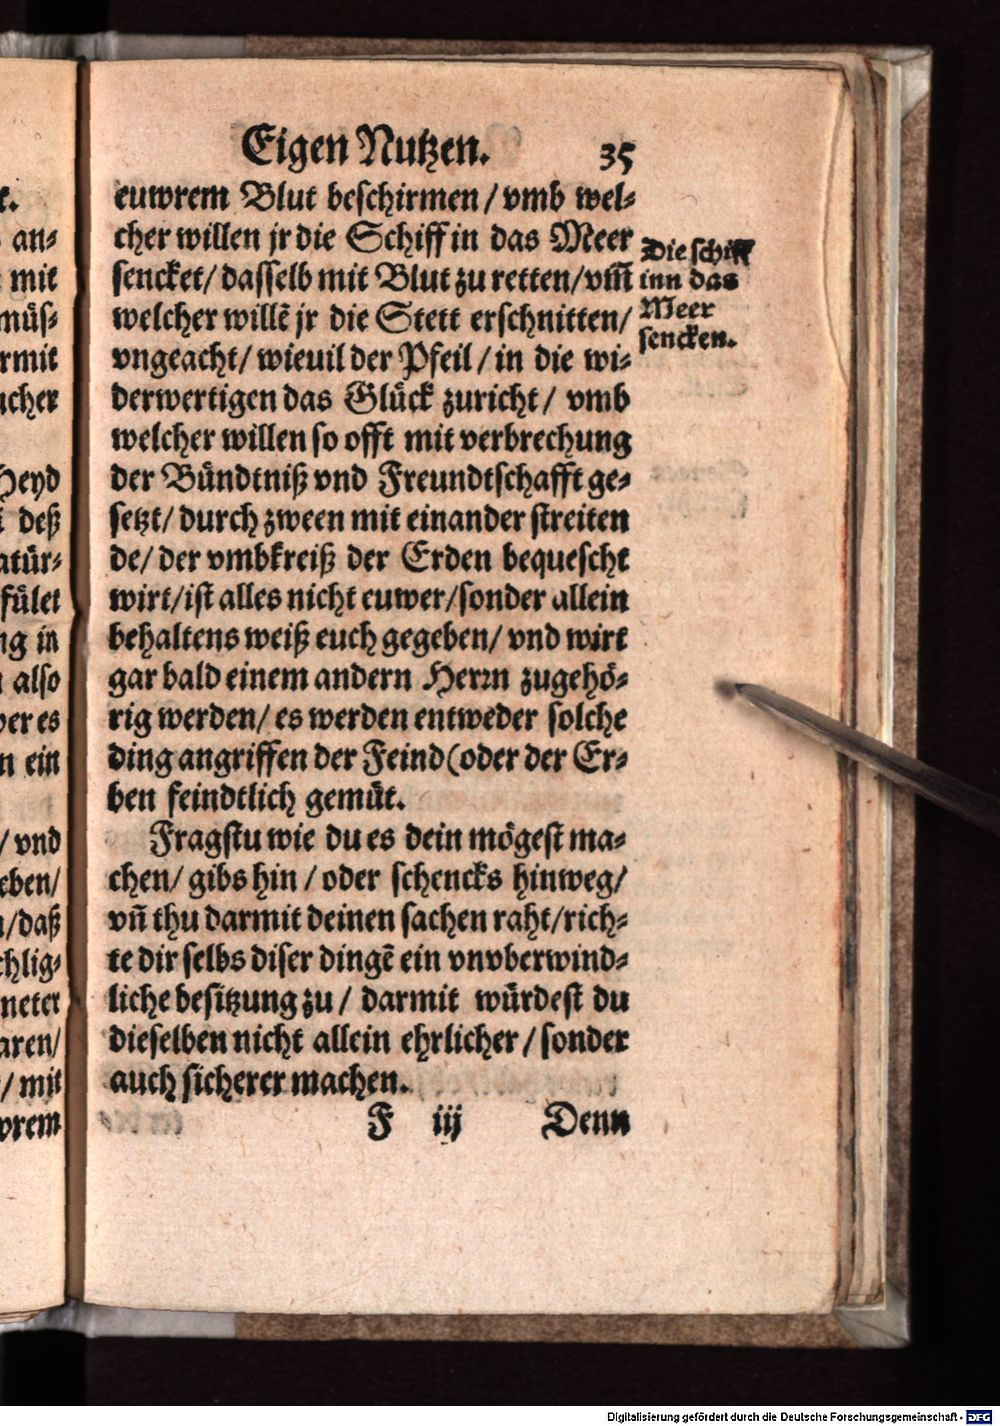 Eigen Nutzen. 35
euwrem Blut beschirmen / vmb wel⸗
cher willen jr die Schiff in das Meer
sencket / dasselb mit Blut zu retten / vm̃
welcher willẽ jr die Stett erschnitten /
vngeacht / wieuil der Pfeil / in die wi⸗
derwertigen das Glück zuricht / vmb
welcher willen so offt mit verbrechung
der Bündtniß vnd Freundtschafft ge⸗
setzt / durch zween mit einander streiten
de / der vmbkreiß der Erden bequescht
wirt / ist alles nicht euwer / sonder allein
behaltens weiß euch gegeben / vnd wirt
gar bald einem andern Herrn zugehö⸗
rig werden / es werden entweder solche
ding angriffen der Feind (oder der Er⸗
ben feindtlich gemüt.
Fragstu wie du es dein mögest ma⸗
chen / gibs hin / oder schencks hinweg /
vñ thu darmit deinen sachen raht / rich⸗
te dir selbs diser dingẽ ein vnvberwind⸗
liche besitzung zu / darmit würdest du
dieselben nicht allein ehrlicher / sonder
auch sicherer machen.
F iij Denn
Die schiff
inn das
Meer
sencken.
an⸗
mit
müs⸗
rmit
ucher
Heyd
deß
atür⸗
fület
ng in
also
ver es
n ein
/ vnd
eben /
/ daß
chlig⸗
neter
aren /
/ mit
wrem
Digitalisierung gefördert durch die Deutsche Forschungsgemeinschaft - DFG